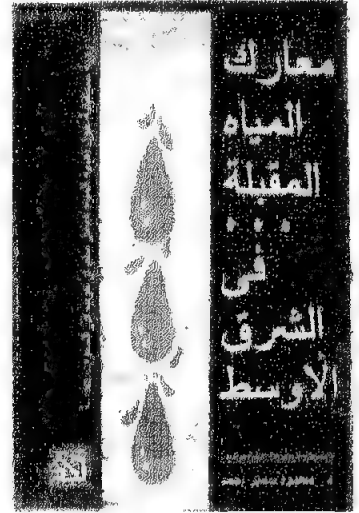 معارك
المياه
المقبلة
...
في
الشرق
الأوسط